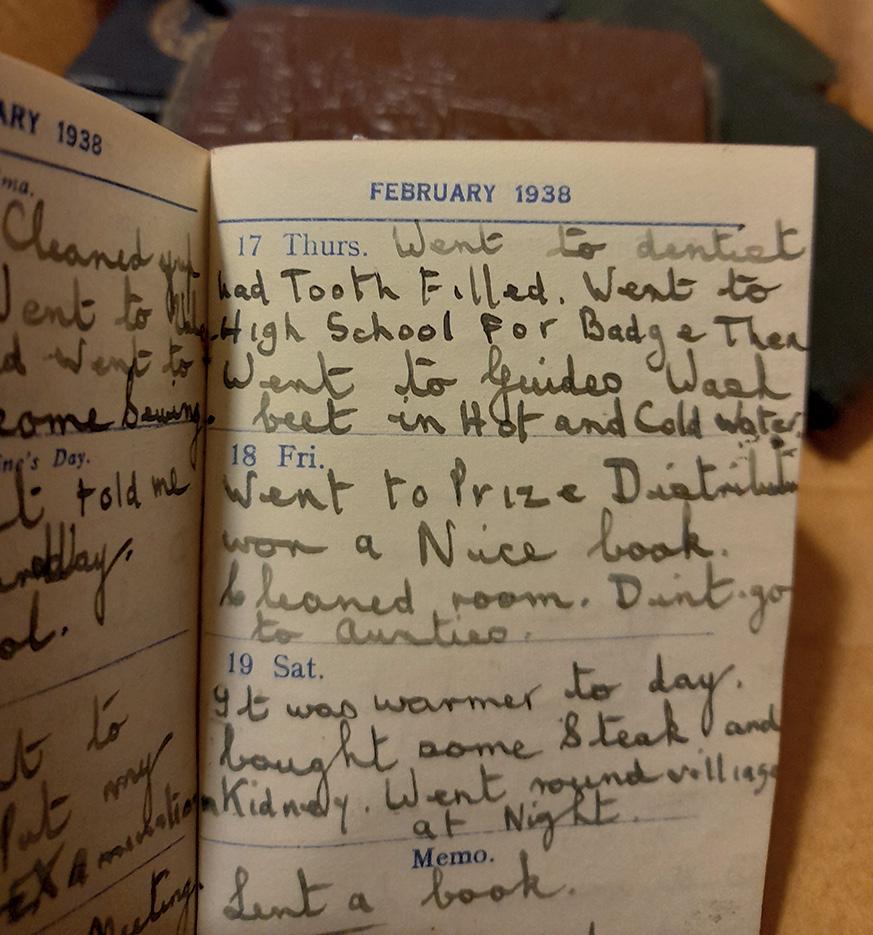 ARY 1938
ma.
Cleaned
Went to
d Went to
some Sewing.
ine's Day.
t told me
ol.
t to
Put my
EXAmination
Meeting.
FEBRUARY 1938
17 Thurs. Went to dentist
had Tooth Filled. Went to
High School For Badge Then
Went to Guides Wash
beet in Hot and Cold water.
18 Fri.
Went to Prize Distribution
won a Nice book.
Cleaned room. Dint go
to Aunties.
19 Sat.
It was warmer to day.
bought some Steak and
Kidney. Went round village
at Night.
Memo.
Lent a book.